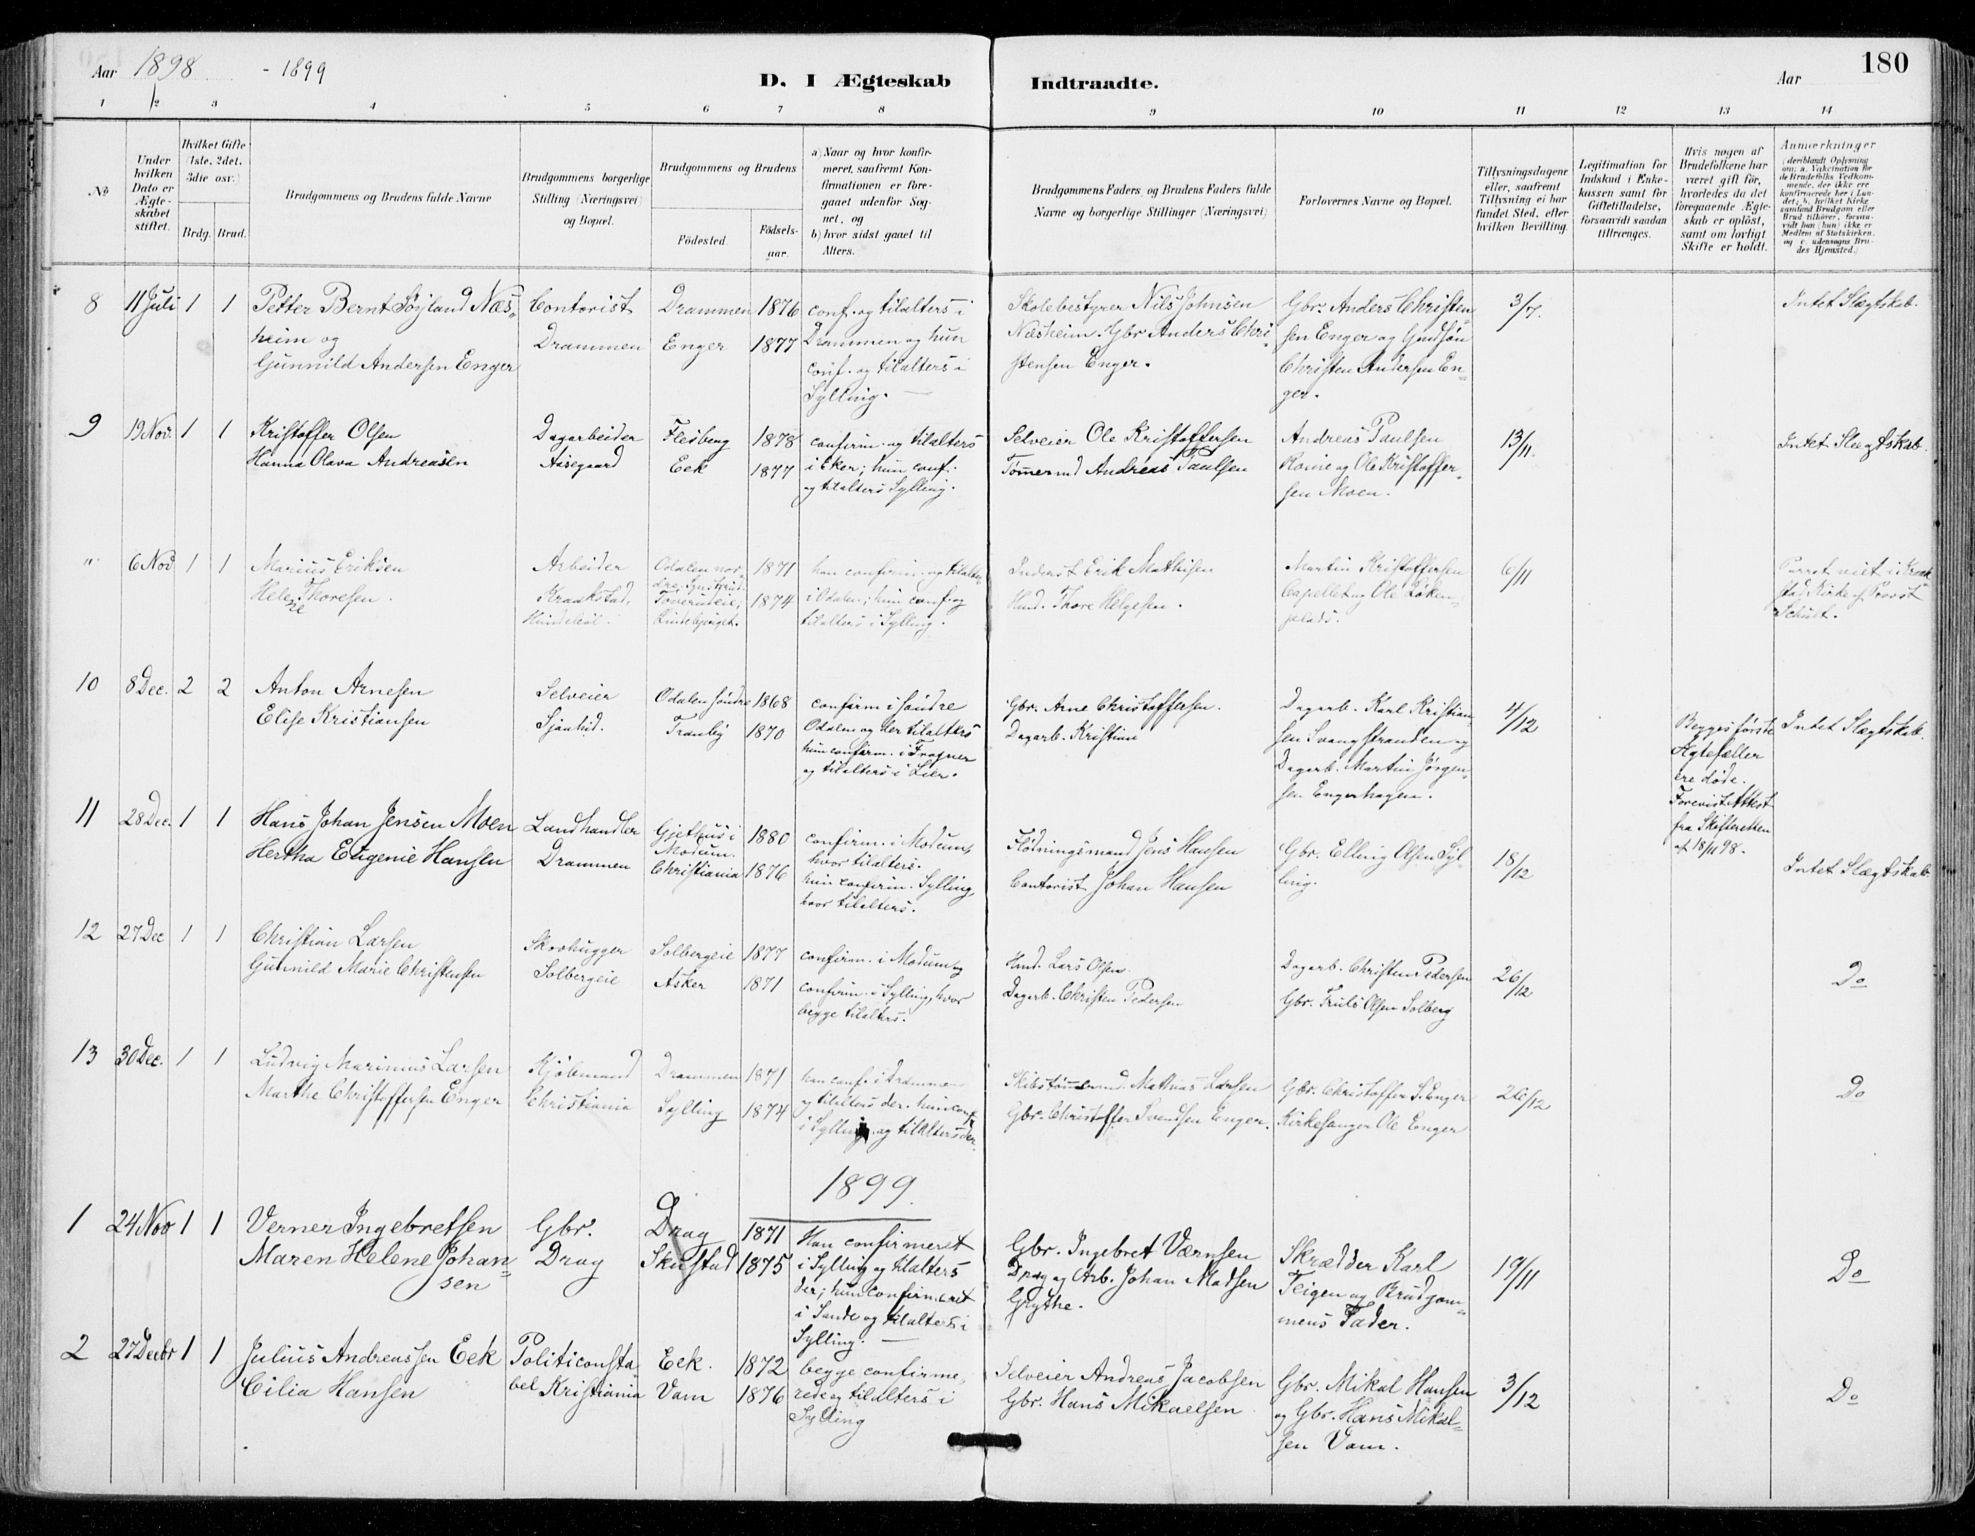 Aar 1898 - 1899
D. I Ægteskab Indtraadte.
Aar 180
1 2 3 4 5 6 7 8 9 10 11 12 13 14
No
Under hvilken Dato er Ægteskabet stiftet.
Hvilket Gifte (1ste, 2det, 3die osv.)
Brdg. Brud.
Brudgommens og Brudens fulde Navne
Brudgommens borgerlige Stilling (Næringsvei) og Bopæl.
Brudgommens og Brudens
Födested.
Födselsaar.
a) Naar og hvor konfirmeret, saafremt Konfirmationen er foregaaet udenfor Sognet, og
b) hvor sidst gaaet til Alters.
Brudgommens Faders og Brudens Faders fulde Navne og borgerlige Stillinger (Næringsvei)
Forlovernes Navne og Bopæl.
Tillysningsdagene eller, saafremt Tillysning ei har fundet Sted, efter hvilken Bevilling.
Legitimation for Indskud i Enkekassen samt for Giftetilladelse, forsaavidt saadan tiltrænges.
Hvis nogen af Brudefolkene har været gift för, hvorledes da det foregaaende Ægteskab er oplöst, samt om lovligt Skifte er holdt.
Anmærkninger
8 11 Juli 1 1
Petter Bernt Næs-
heim og
Gunnild Andersen Enger
Contorist
Drammen
Drammen 1876
Enger 1877
conf. og tilalters i
Drammen og hun
conf. og tilalters i
Sylling.
Skolebestyrer Nils Johnsen
Næsheim. Gbr Anders Chri-
stensen Enger.
Gbr. Anders Christen-
sen Enger og Gmdsøn
Christen Andersen En-
ger.
3/7.
Intet Slægtskab.
9 19 Nov. 1 1
Kristoffer Olsen
Hanna Olava Andreasen
Dagarbeider
Aasegaard
Flesberg 1878
Eek 1877
confirm. og tilalters
i Eker; hun conf.
og tilalters Sylling.
Selveier Ole Kristoffersen
Tømermd Andreas Paulsen
Andreas Paulsen
og Ole Kristoffer-
sen Moen.
13/11.
Intet Slægtskab.
" 6 Nov 1 1
Marius Eriksen
Helene Thoresen.
Arbeider
Kraakstad,
Odalen nor-
1871
1874
han confirm. og tilalters
i Odalen; hun conf. og
tilalters i Sylling.
Inderst Erik Mathisen
Hmd. Thore Helgesen.
Martin Kristoffersen
Capellet og Ole Løken-
plads.
6/11
Parret viet i Kraak-
stad Kirke af Provst
Schult.
10 8 Dec. 2 2
Anton Arnesen
Elise Kristiansen
Selveier
Odalen søndre 1868
Tranby 1870
confirm i søndre
Odalen og her tilalters
hun confirm. i Fragner
og tilalters i Lier.
Gbr. Arne Christoffersen.
Dagarb. Kristian
Dagarb. Karl Kristian-
sen Svangstranden og
Dagarb. Martin Jørgen-
sen Engerhagen.
4/12
Begges første
Ægtefæller
ere døde.
Forevist Attest
fra Skifteretten
af 18/11 98.
Intet Slægtskab.
11 28 Dec. 1 1
Hans Johan Jensen Moen
Hertha Eugenie Hansen
Landhandler
Drammen
Gjethus i
Modum. 1880
Christiania 1876
confirm. i Modum,
hvor tilalters.
hun confirm. Sylling,
hvor tilalters.
Flødningsmand Jens Hansen
Contorist Johan Hansen
Gbr. Elling Olsen Syl-
ling.
18/12
Intet Slægtskab
12 27 Dec 1 1
Christian Larsen
Gunnild Marie Christensen
Skovhugger
Solbergeie
Solbergeie 1877
Asker 1871
confirm. i Modum og
confirm. i Sylling, hvor
begge tilalters.
Hmd. Lars Olsen.
Dagarb. Christen Pedersen
Dagarb. Christen Pedersen
Gbr. Truls Olsen Solberg
26/12
Do
13 30 Dec. 1 1
Ludvig Marinius Larsen
Marthe Christoffersen Enger
Kjøbmand
Christiania
Drammen 1871
Sylling 1874
han conf. i Drammen
og tilalters der. hun conf.
i Sylling og tilalters der.
Skibstømermd. Mathias Larsen
Gbr. Christoffer Svendsen Enger.
Gbr. Christoffer S. Enger
Kirkesanger Ole Enger
26/12
Do
1899
1 24 Nov 1 1
Verner Ingebretsen
Maren Helene Johan-
sen
Gbr.
Drag
Drag 1871
Skustad 1875
Han confirmeret
i Sylling og tilalters
der; hun confirmeret
i Sande og tilalters i
Sylling.
Gbr. Ingebret Værnsen
Drag og Arb. Johan Madsen
Grythe.
Skrædder Karl
Teigen og Brudgom-
mens Fader.
19/11
Do
2 27 Decbr 1 1
Julius Andreassen Eek
Cilia Hansen
Politiconsta
bel Kristiania
Eek. 1872
Vam 1876
begge confirme-
rede og tilalters i
Sylling
Selveier Andreas Jacobsen
Gbr. Hans Mikaelsen
Gbr. Mikal Hansen
og Gbr. Hans Mikal-
sen Vam.
3/12
Do